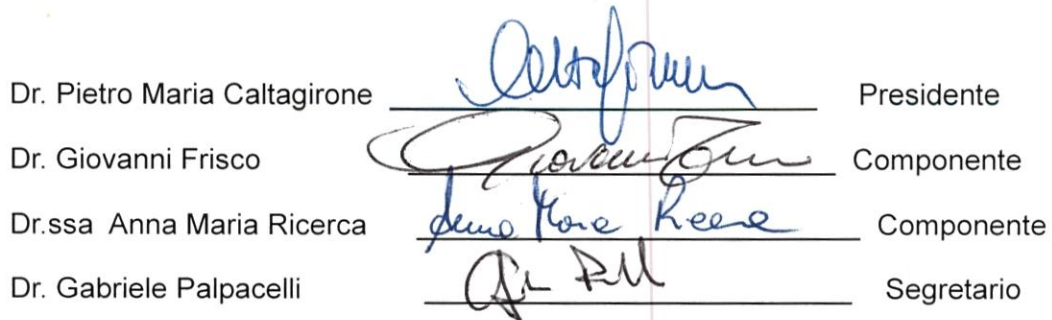 Dr. Pietro Maria Caltagirone Presidente
Dr. Giovanni Frisco Giovanni Componente
Dr.ssa Anna Maria Ricerca Anna Maria Componente
Dr. Gabriele Palpacelli Segretario